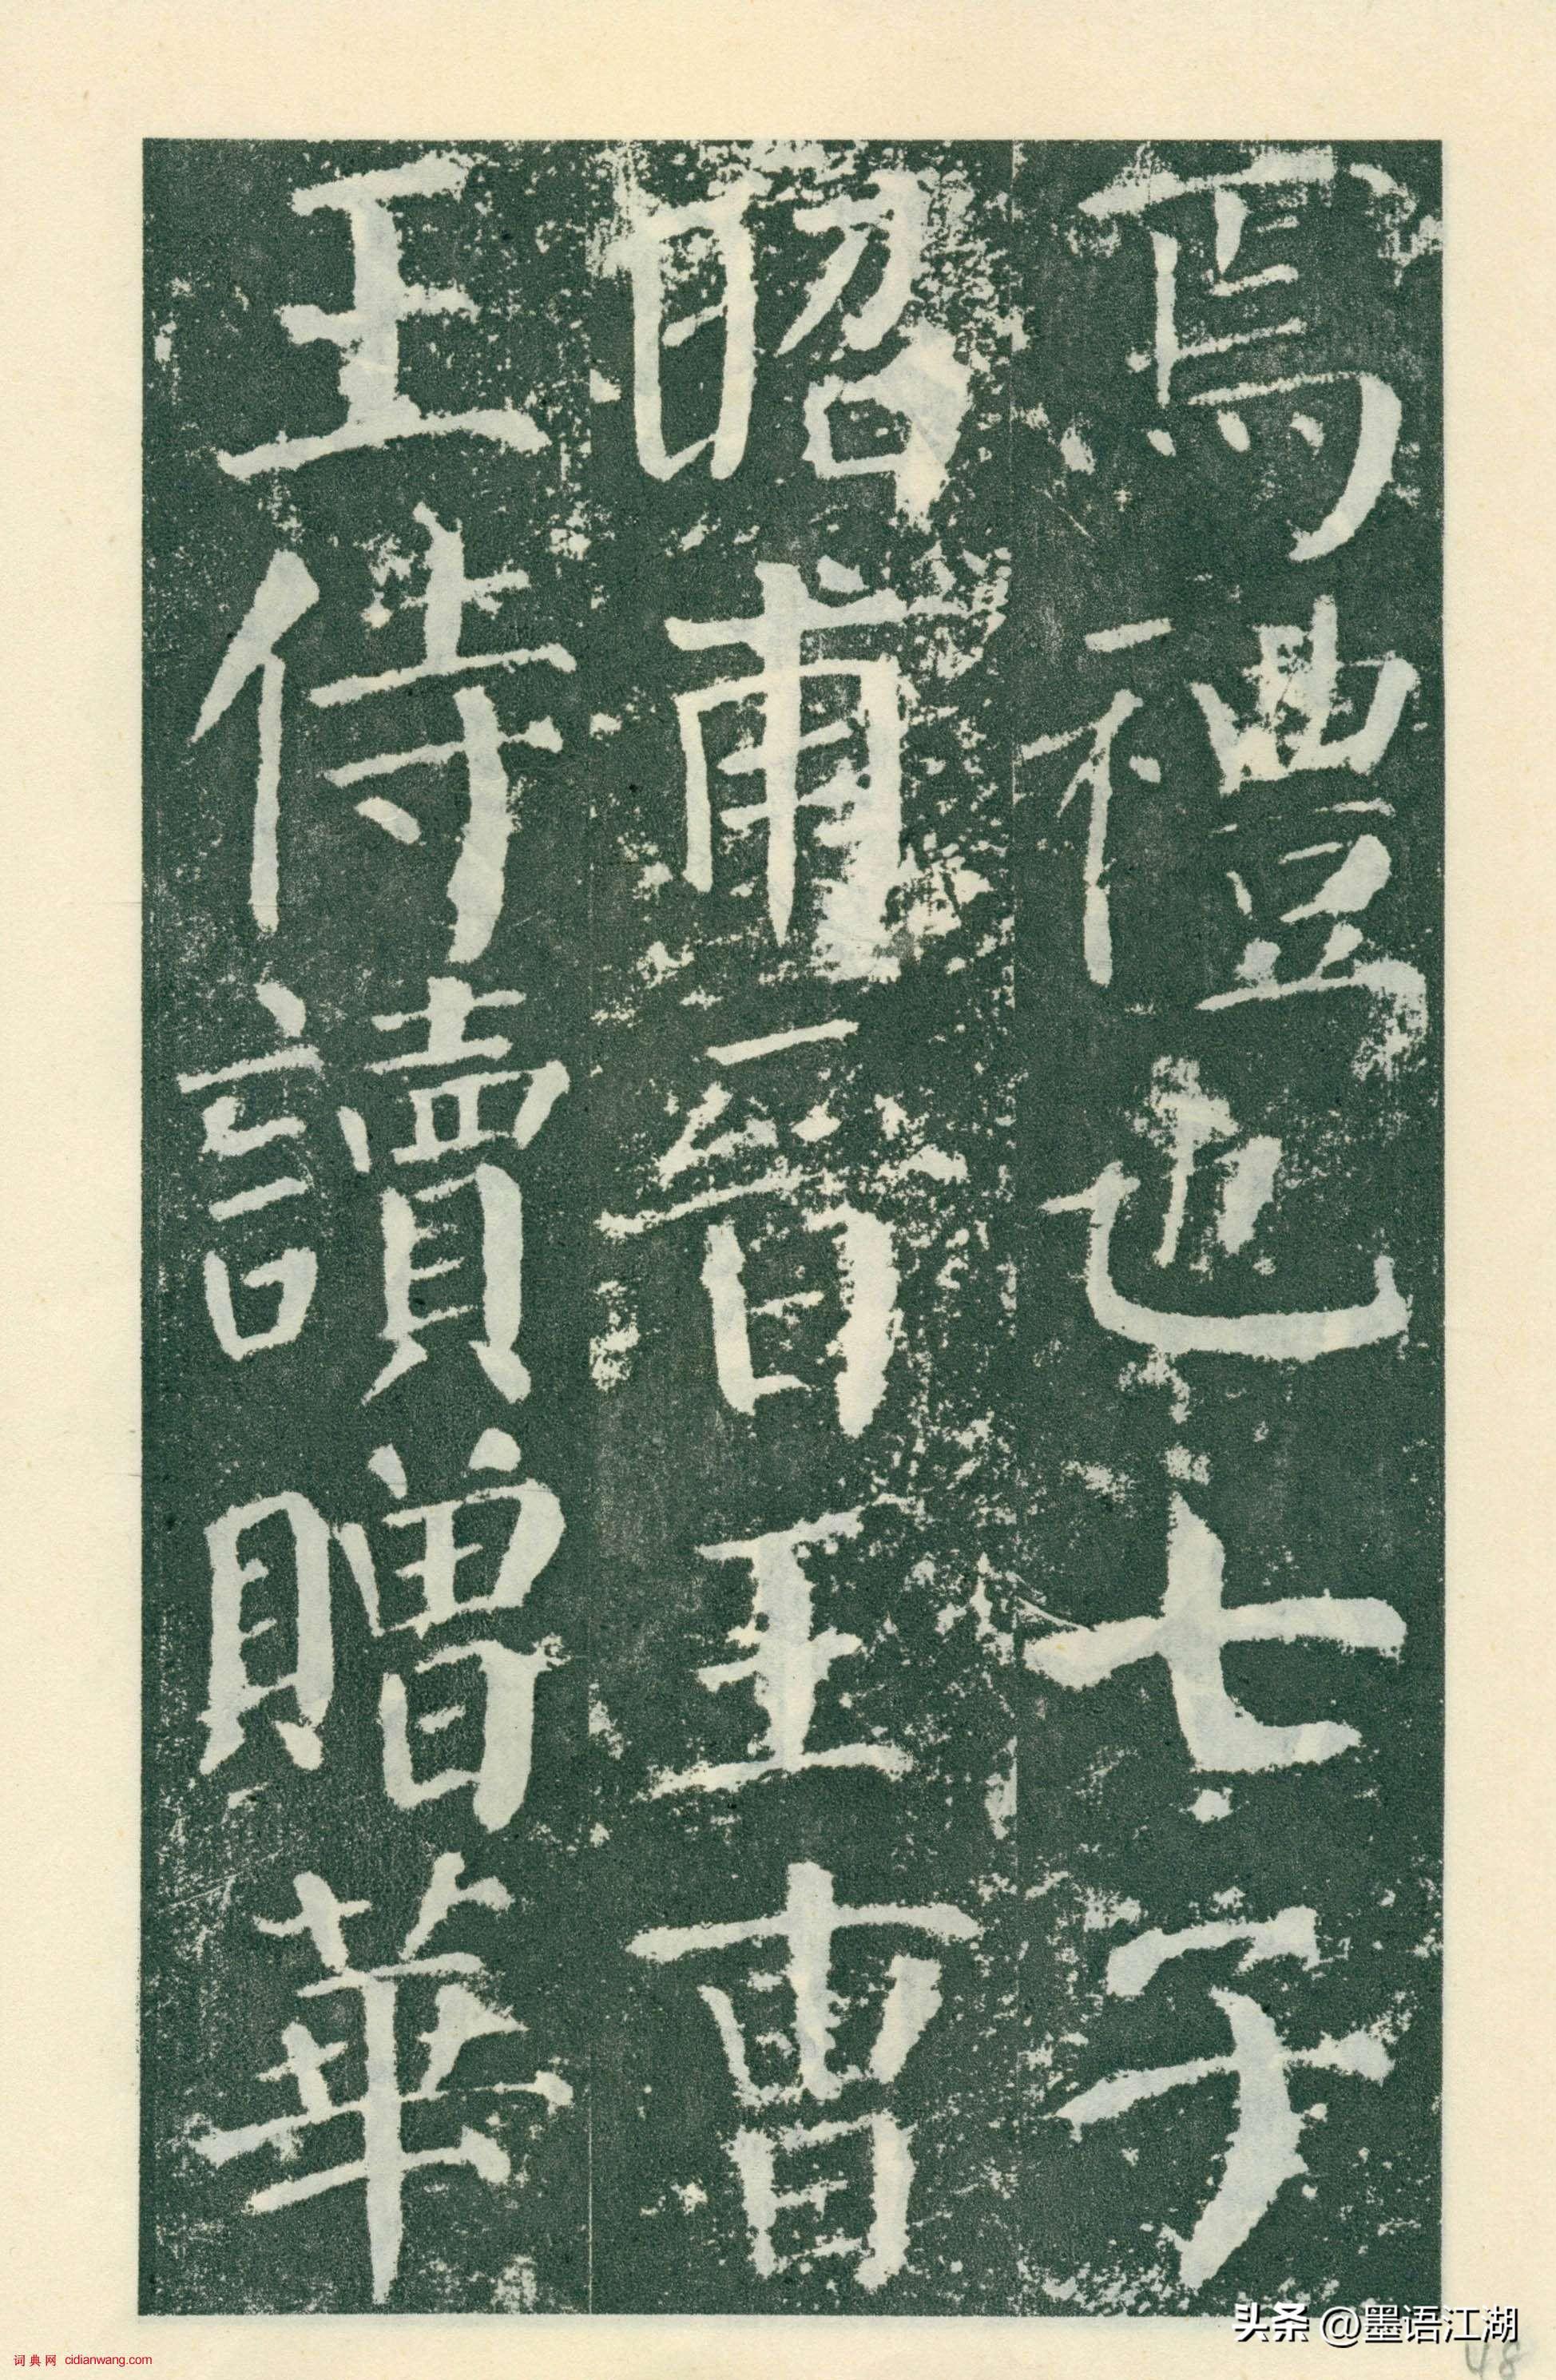 焉禮也七子
昭甫晋王曹
王侍讀贈華
头条 @墨语江湖
词典网 cidianwang.com
48